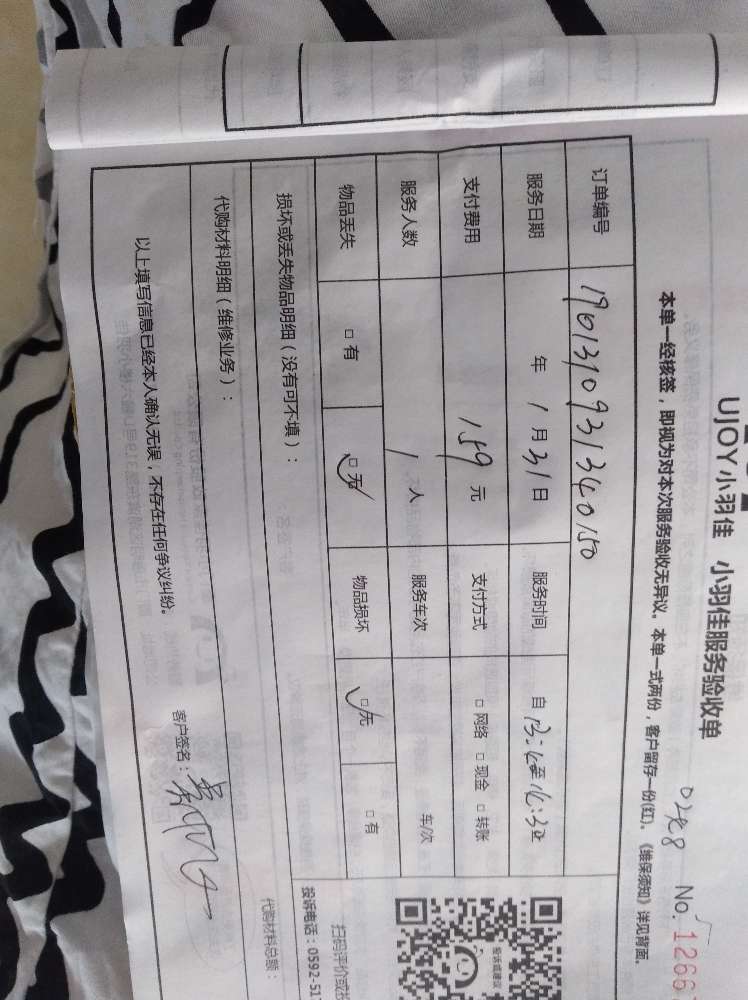 UJOY小羽佳 小羽佳服务验收单
No. 1266
本单一经核签，即视为对本次服务验收无异议。本单一式两份，客户留存一份(红)。《维保须知》详见背面。
订单编号 1901310931340150
服务日期 年 1 月 31 日 服务时间 自 至
支付费用 159 元 支付方式 □ 网络 □ 现金 □ 转账
服务人数 1 人 服务车次 车/次
物品丢失 □ 有 □ 无 物品损坏 □ 无 □ 有
损坏或丢失物品明细（没有可不填）：
代购材料明细（维修业务）：
代购材料总额：
以上填写信息已经本人确认无误，不存在任何争议纠纷。
客户签名：
投诉或建议
扫码评价或投
投诉电话：0592-517